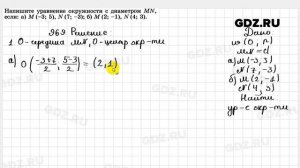 Напишите уравнение окружности с диаметром MN,
если: а) M (−3; 5), N (7; −3); б) M (2; −1), N (4; 3).
GDZ.RU
969. Решение
1. O - середина MN, O - центр окр-ти
а) O (−3+7/2 ; 5−3/2) = (2, 1)
Дано
ω (O, r)
MN = d
а) M(−3, 5)
N (7, −3)
б) M(2, −1)
N (4, 3)
Найти
ур-е окр-ти
GDZ.RU